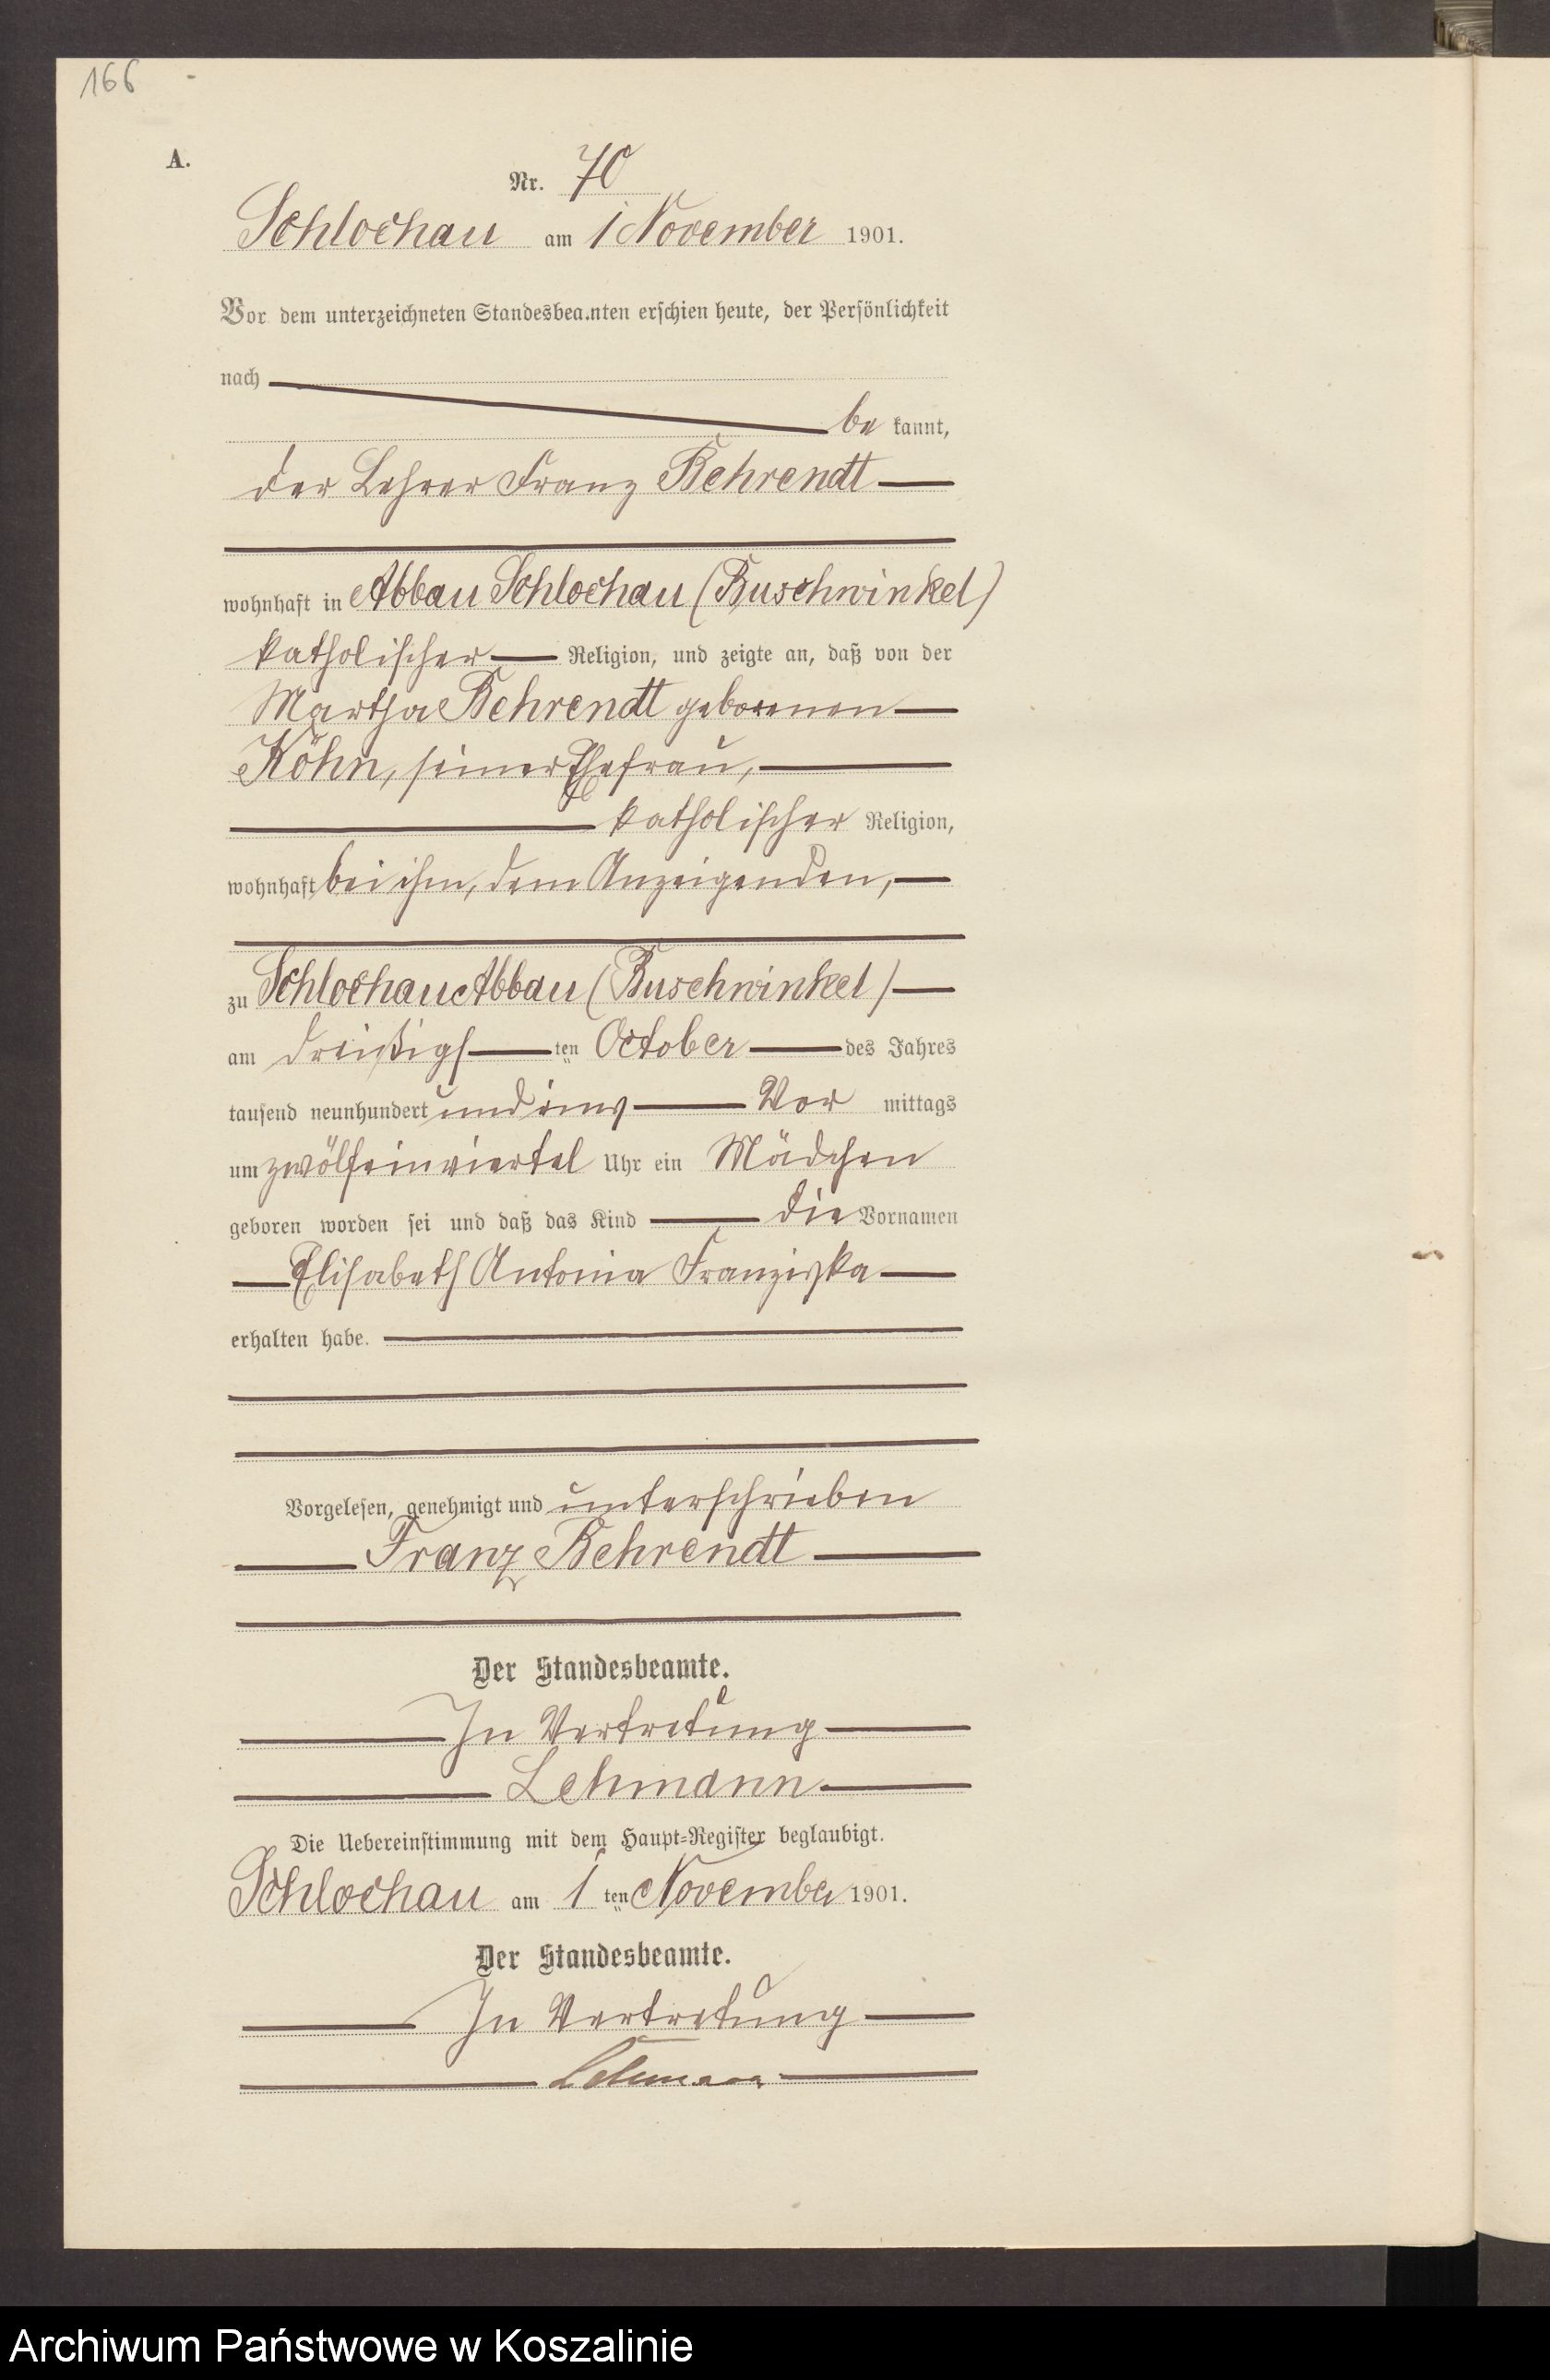 166
A.
Nr. 70
Schlochau am 1 November 1901.
Vor dem unterzeichneten Standesbeamten erschien heute, der Persönlichkeit
nach
be kannt,
der Lehrer Franz Behrendt
wohnhaft in Abbau Schlochau (Buschwinkel)
katholischer Religion, und zeigte an, daß von der
Martha Behrendt geborenen
Köhn, seiner Ehefrau,
katholischer Religion,
wohnhaft bei ihm, dem Anzeigenden,
zu Schlochau Abbau (Buschwinkel)
am dreißigs ten October des Jahres
tausend neunhundert und eins Vor mittags
um zwölfeinviertel Uhr ein Mädchen
geboren worden sei und daß das Kind die Vornamen
Elisabeth Antonia Franziska
erhalten habe.
Vorgelesen, genehmigt und unterschrieben
Franz Behrendt
Der Standesbeamte.
In Vertretung
Lehmann
Die Uebereinstimmung mit dem Haupt-Register beglaubigt.
Schlochau am 1 ten November 1901.
Der Standesbeamte.
In Vertretung
Lehmann
Archiwum Państwowe w Koszalinie